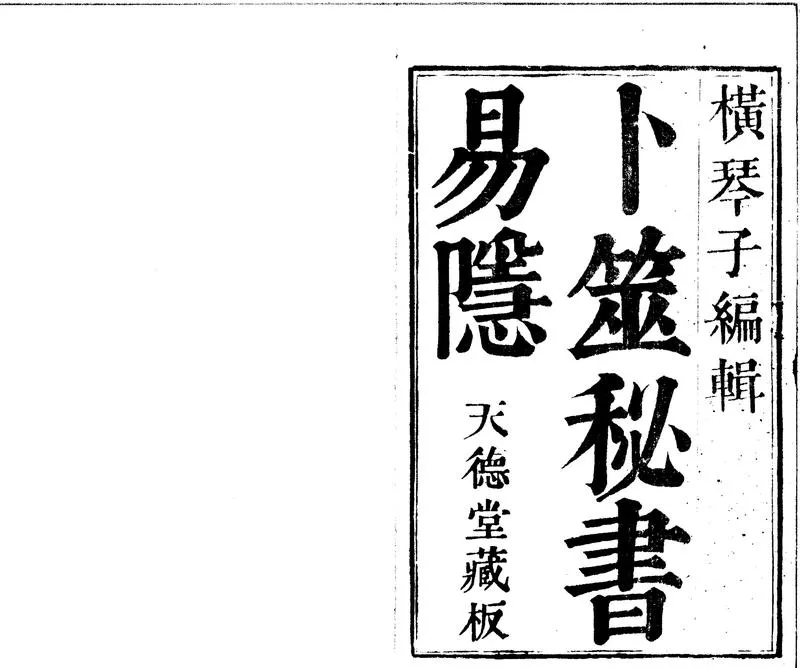 橫琴子編輯
卜筮秘書
易隱
天德堂藏板